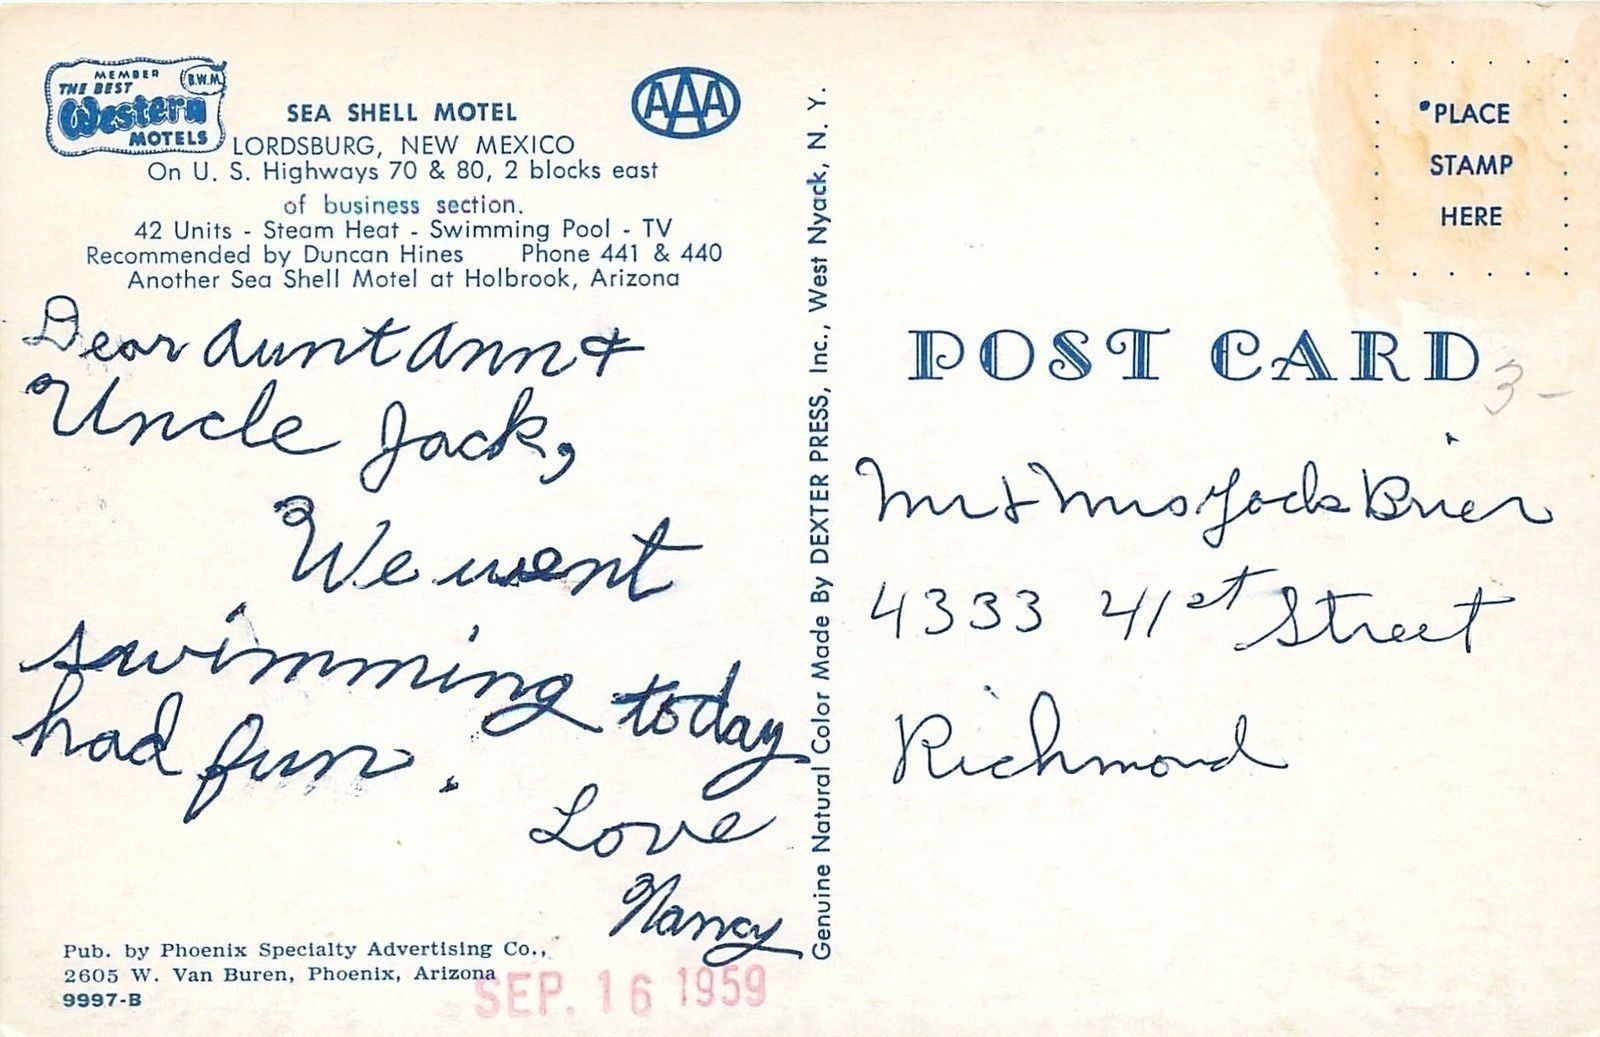 MEMBER
THE BEST
Western
MOTELS
B.W.M.
SEA SHELL MOTEL
LORDSBURG, NEW MEXICO
On U. S. Highways 70 & 80, 2 blocks east
of business section.
42 Units - Steam Heat - Swimming Pool - TV
Recommended by Duncan Hines Phone 441 & 440
Another Sea Shell Motel at Holbrook, Arizona
AAA
Dear Aunt Ann &
Uncle Jack,
We went
swimming today
had fun.
Love
Nancy
Pub. by Phoenix Specialty Advertising Co.,
2605 W. Van Buren, Phoenix, Arizona
9997-B
SEP. 16 1959
Genuine Natural Color Made By DEXTER PRESS, Inc., West Nyack, N. Y.
PLACE
STAMP
HERE
POST CARD
3-
Mr & Mrs Jack Brier
4333 41st Street
Richmond